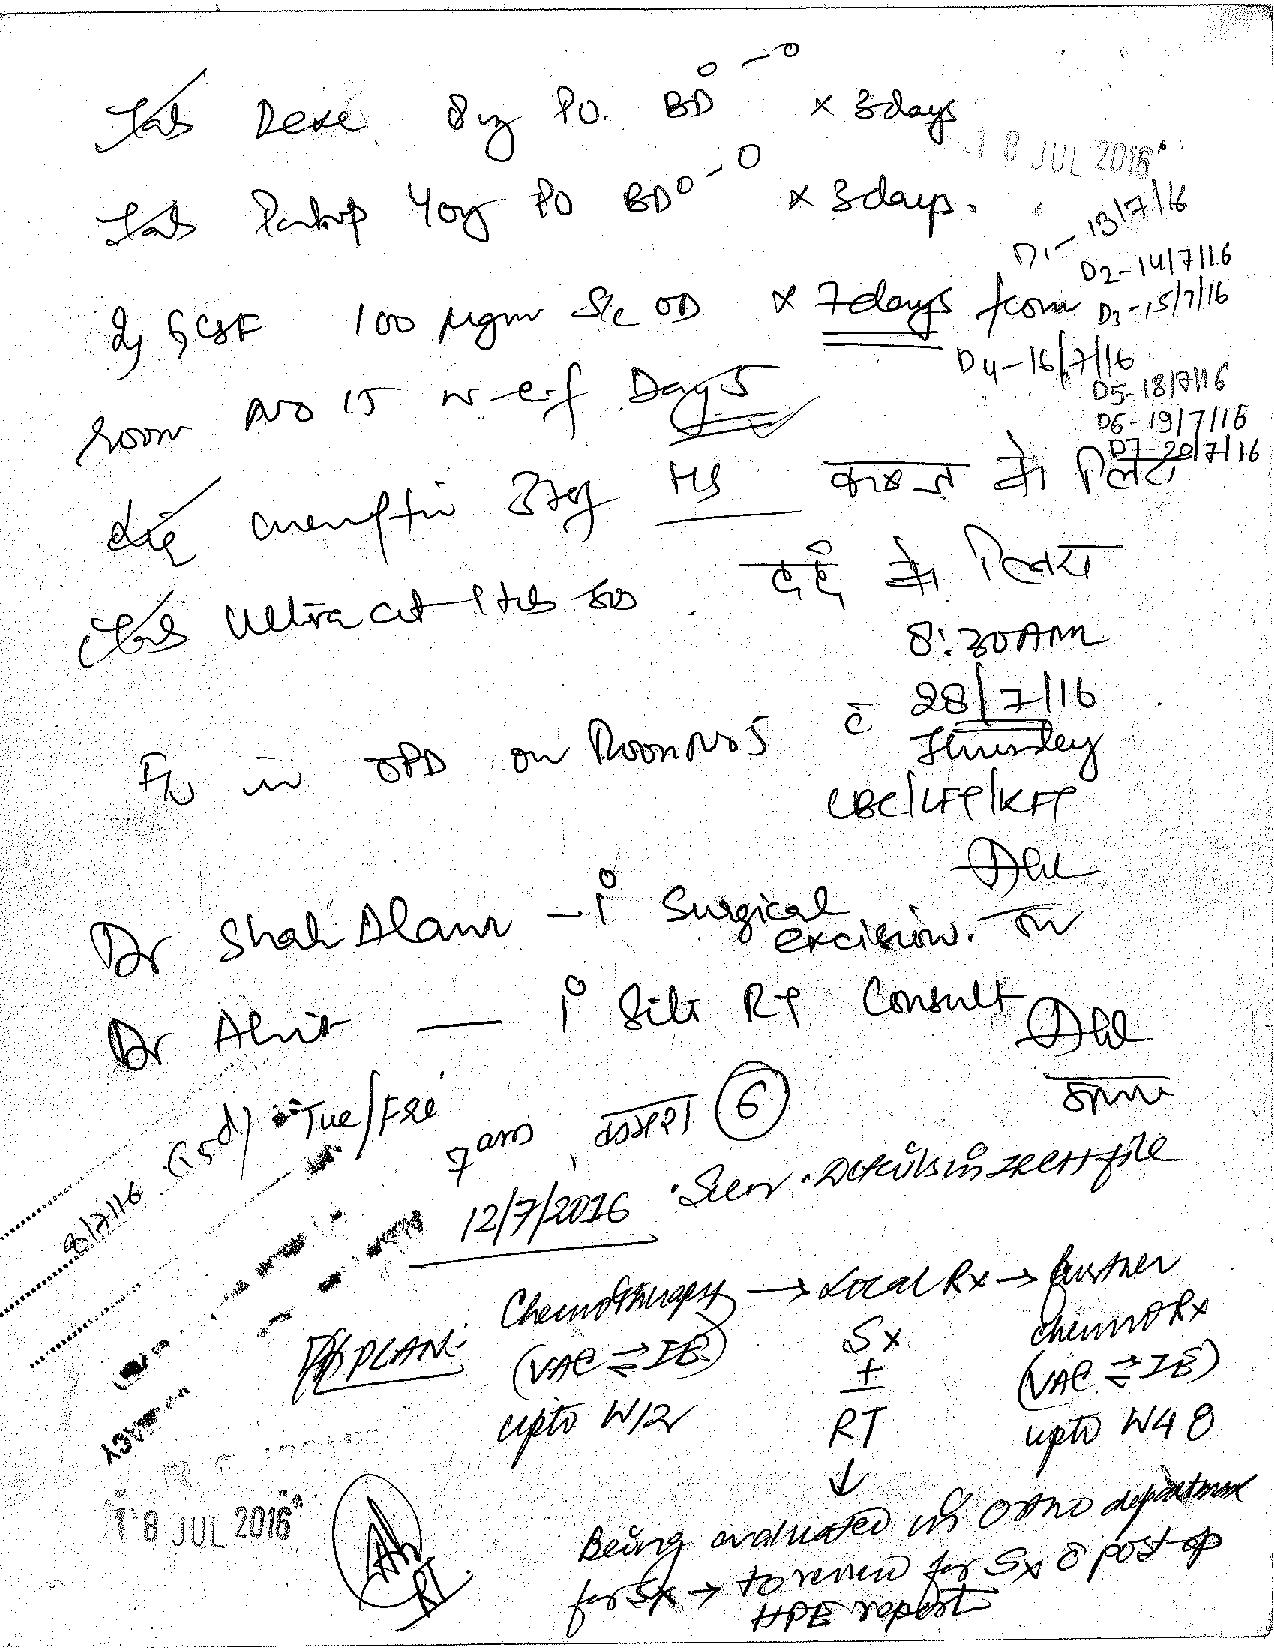 Tab Dexa 8mg PO. BD 0-0 x 3days
18 JUL 2016
Tab Pantop 40mg PO BD 0-0 x 3days.
D1-13/7/16
D2-14/7/16
Inj GCSF 100 μgm S/c OD x 7days from
D3-15/7/16
D4-16/7/16
Room No 15 w-e-f Day 5
D5-18/7/16
D6-19/7/16
D7-20/7/16
HS कब्ज के लिए
Tab Ultracet 1 tab दर्द के लिये
8:30AM
28/7/16
F/U in OPD on Room No 5 c̄
Thursday
CBC/LFT/KFT
Dr Shah Alam - i° Surgical
excision.
Dr — i° RT Consult
Tue/Fri
7am कमरा 6
8/7/16
12/7/2016 Seen. Details in file
PLAN: Chemotherapy → Local Rx → further
chemo Rx
(VAC ⇌ IE) Sx (VAC ⇌ IE)
±
upto W12 RT upto W48
↓
18 JUL 2016
Being evaluated in Ortho department
for Sx → to review for Sx & post-op
HPE report
RT